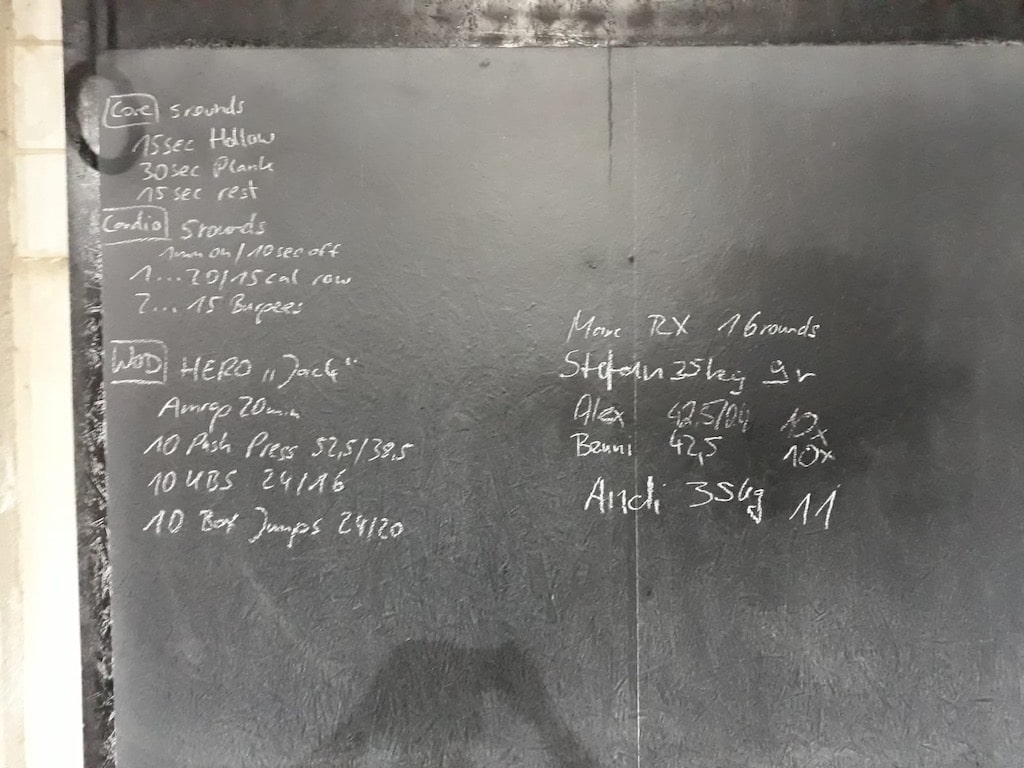 Core 5 rounds
15sec Hollow
30sec Plank
15sec rest
Cardio 5 rounds
1min on/10sec off
1... 20/15 cal row
2... 15 Burpees
WOD HERO „Jack“
Amrap 20min
10 Push Press 52,5/38,5
10 KBS 24/16
10 Box Jumps 24/20
Marc RX 16rounds
Stefan 35kg 9r
Alex 42,5/24 10x
Benni 42,5 10x
Andi 35kg 11